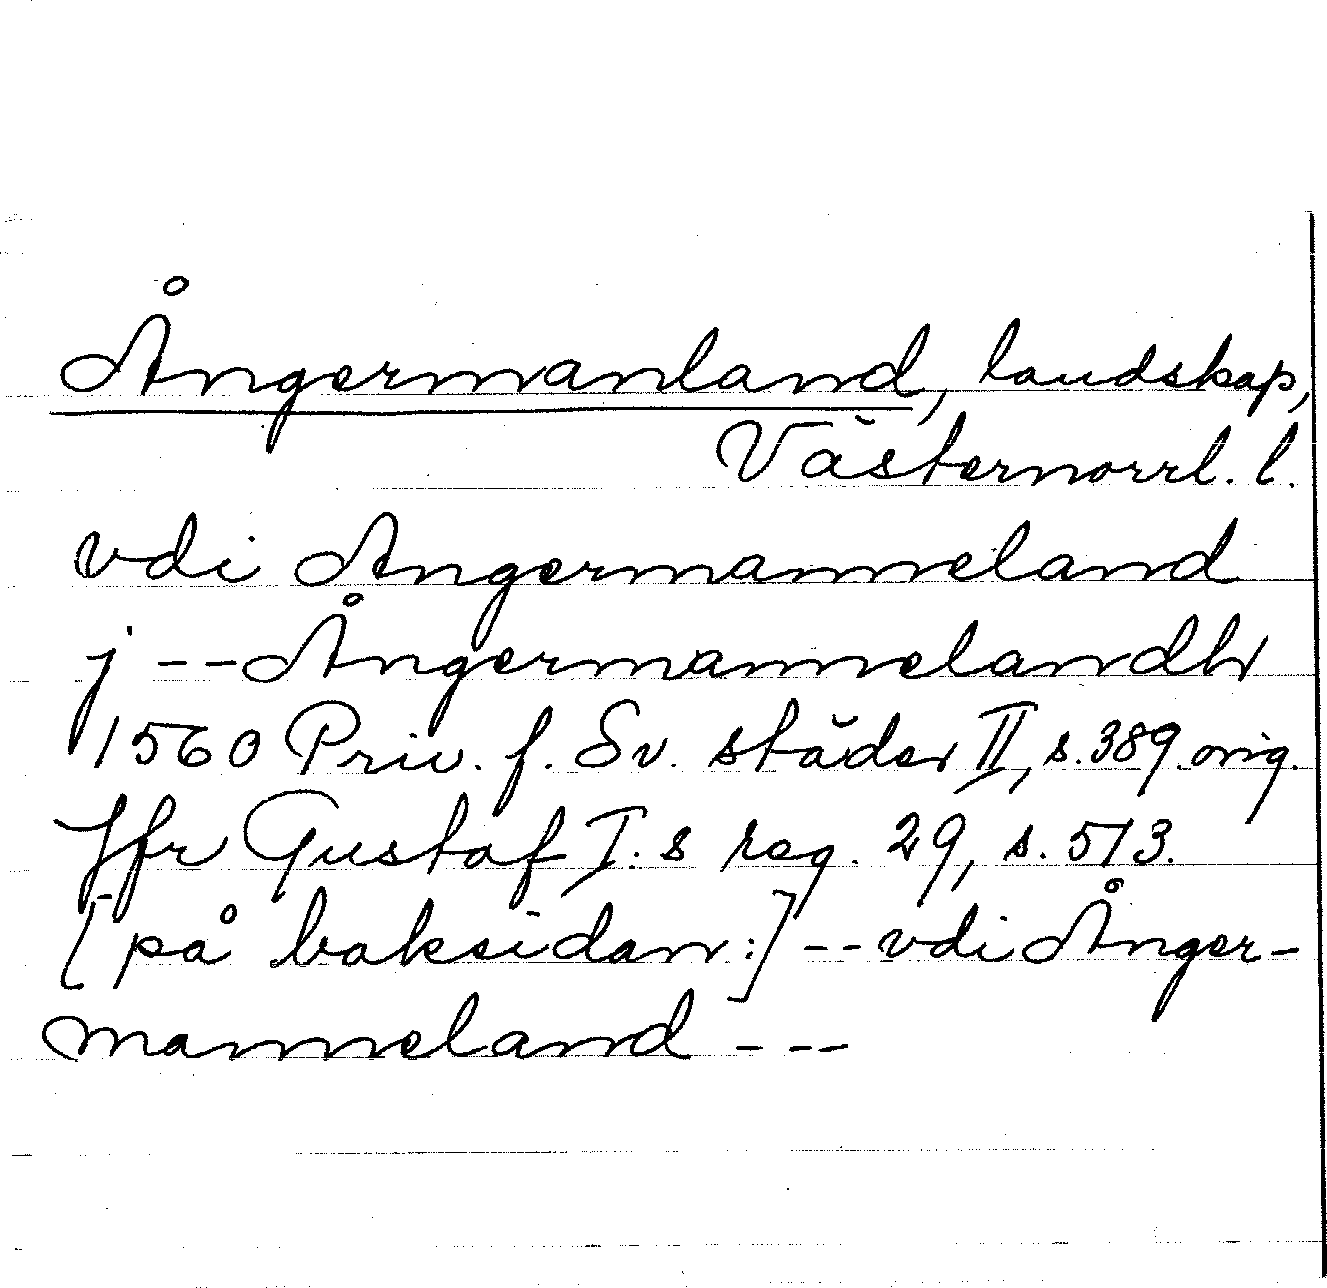 Ångermanland, landskap,
Västernorrl. l.
vdi Angermanneland
j -- Ångermannelandh
1560 Priv. f. Sv. städer II, s. 389. orig.
Jfr Gustaf I. s reg. 29, s. 513.
[på baksidan:] -- vdi Ånger-
manneland ---